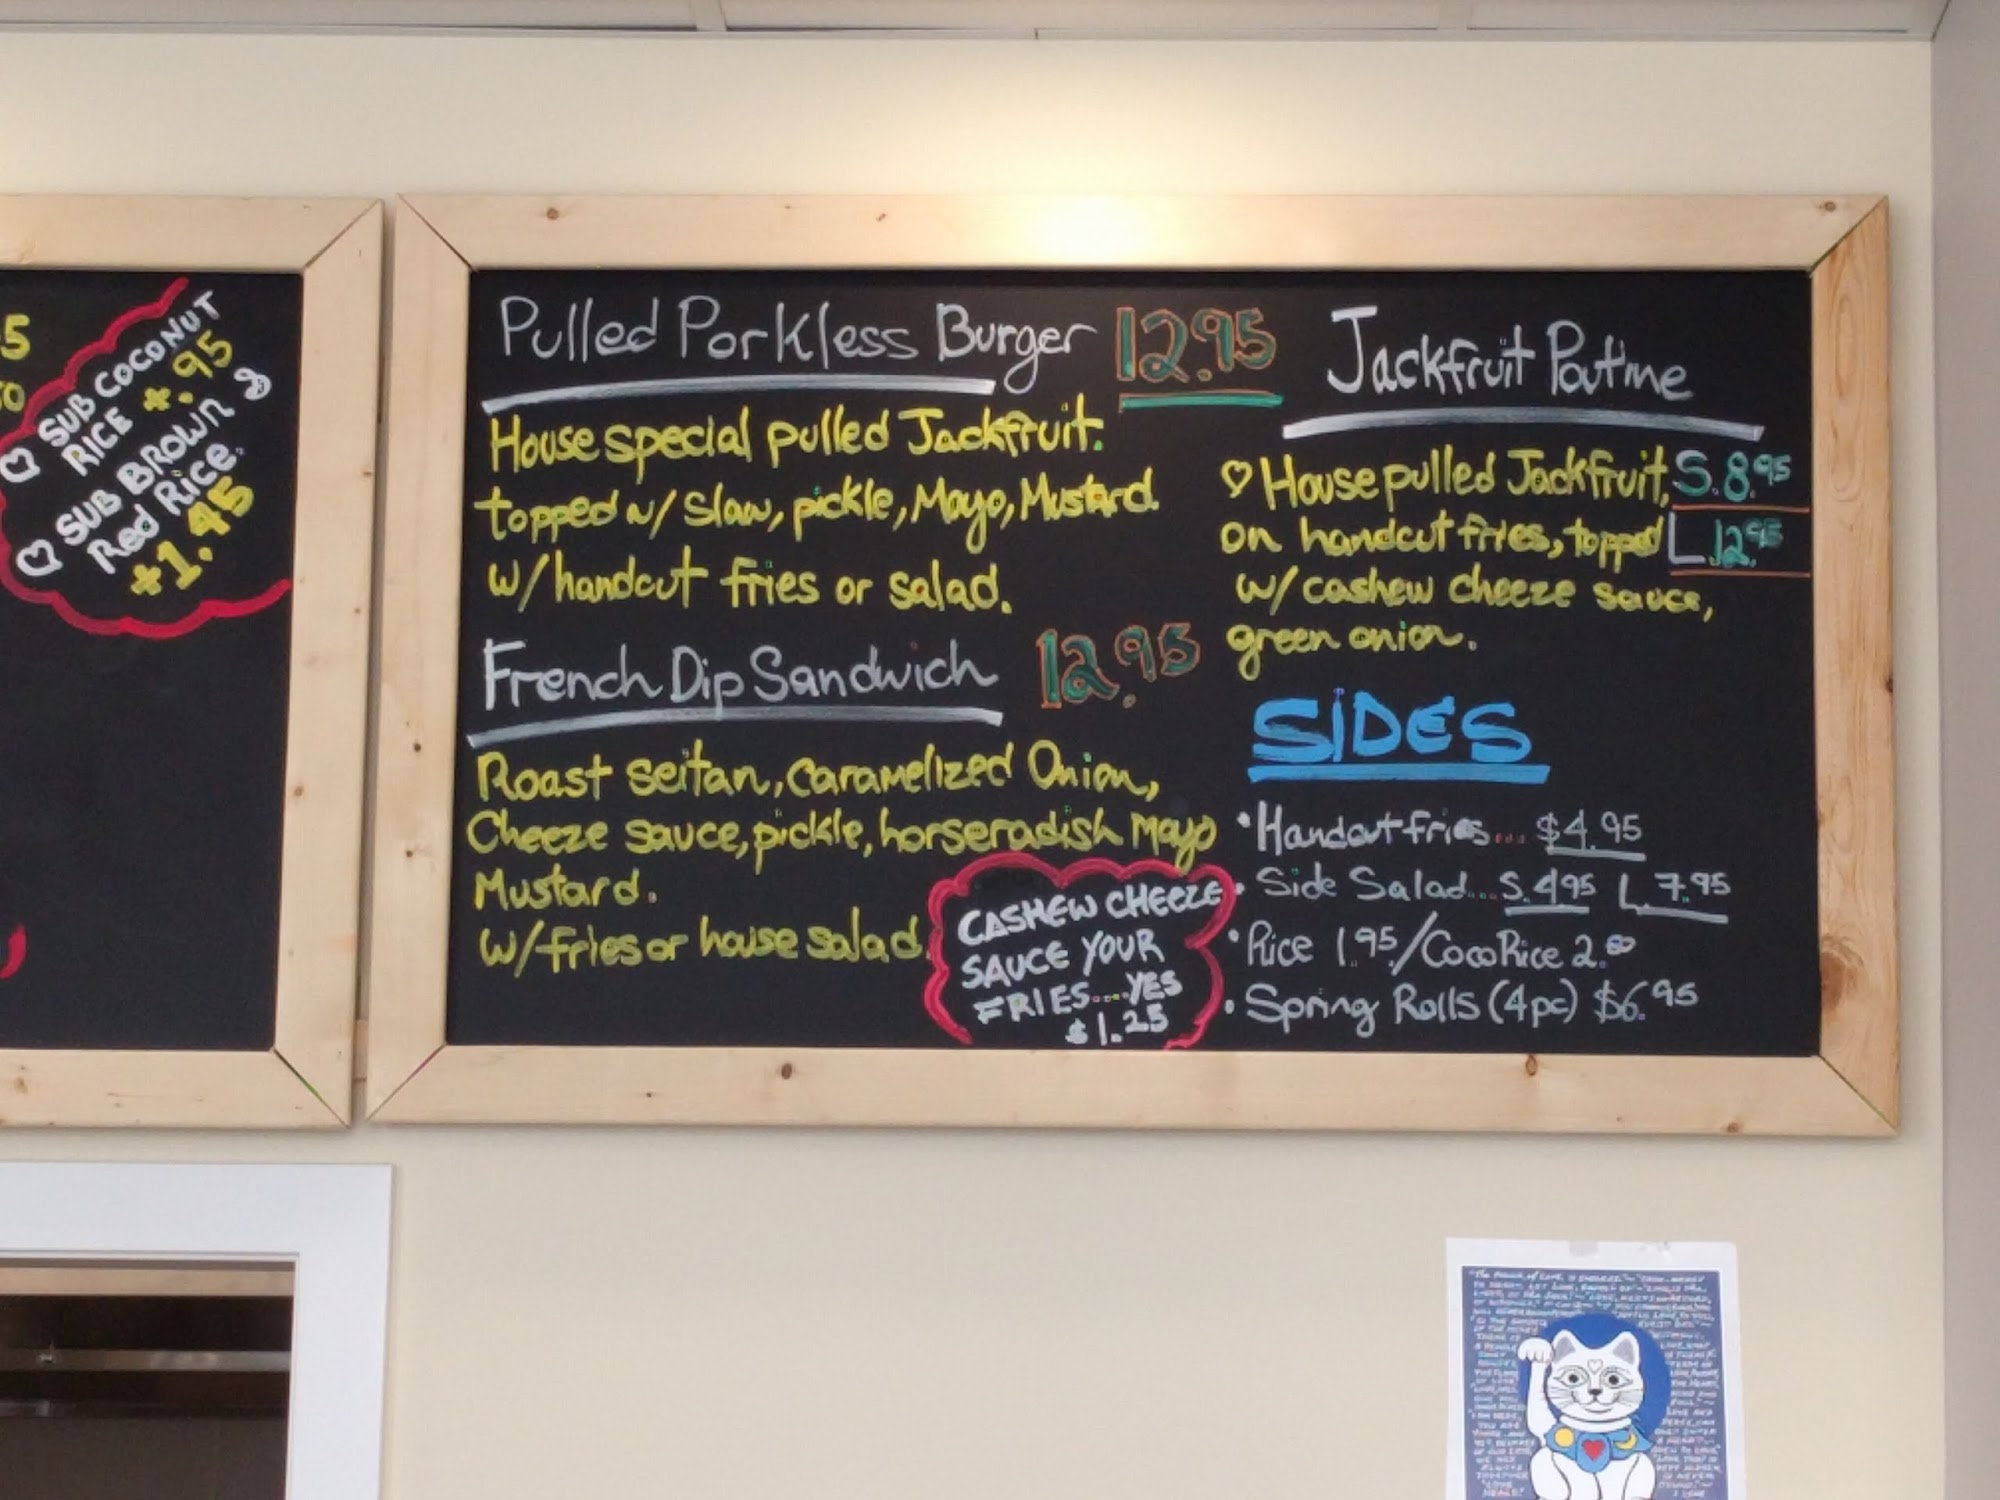 5
50
♡ SUB COCONUT
RICE +.95
♡ SUB BROWN &
Red Rice.
+1.45
Pulled Porkless Burger 12.95
House special pulled Jackfruit.
topped w/ Slaw, pickle, Mayo, Mustard.
w/handcut fries or salad.
French Dip Sandwich 12.95
Roast seitan, caramelized Onion,
Cheeze sauce, pickle, horseradish Mayo
Mustard.
w/fries or house salad.
CASHEW CHEEZE
SAUCE YOUR
FRIES....YES
$1.25
Jackfruit Poutine
♡ House pulled Jackfruit, S. 8.95
on handcut fries, topped L. 12.95
w/ cashew cheeze sauce,
green onion.
SIDES
• Handcut fries... $4.95
• Side Salad... S. 4.95 L. 7.95
• Rice 1.95/CocoRice 2.50
• Spring Rolls (4pc) $6.95